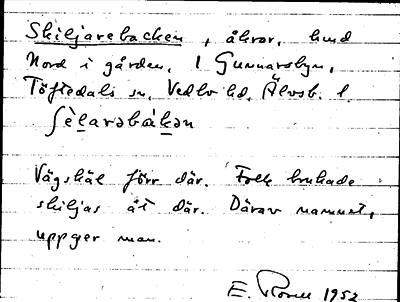 Skiljarebacken, åkrar, lund
Nord i gården. 1 Gunnarsbyn,
Töftedals sn, Vedbo hd, Älvsb. l.
ʃèlarəbàkən
Vägskäl förr där. Folk brukade
skiljas åt där. Därav namnet,
uppger man.
E. 1952